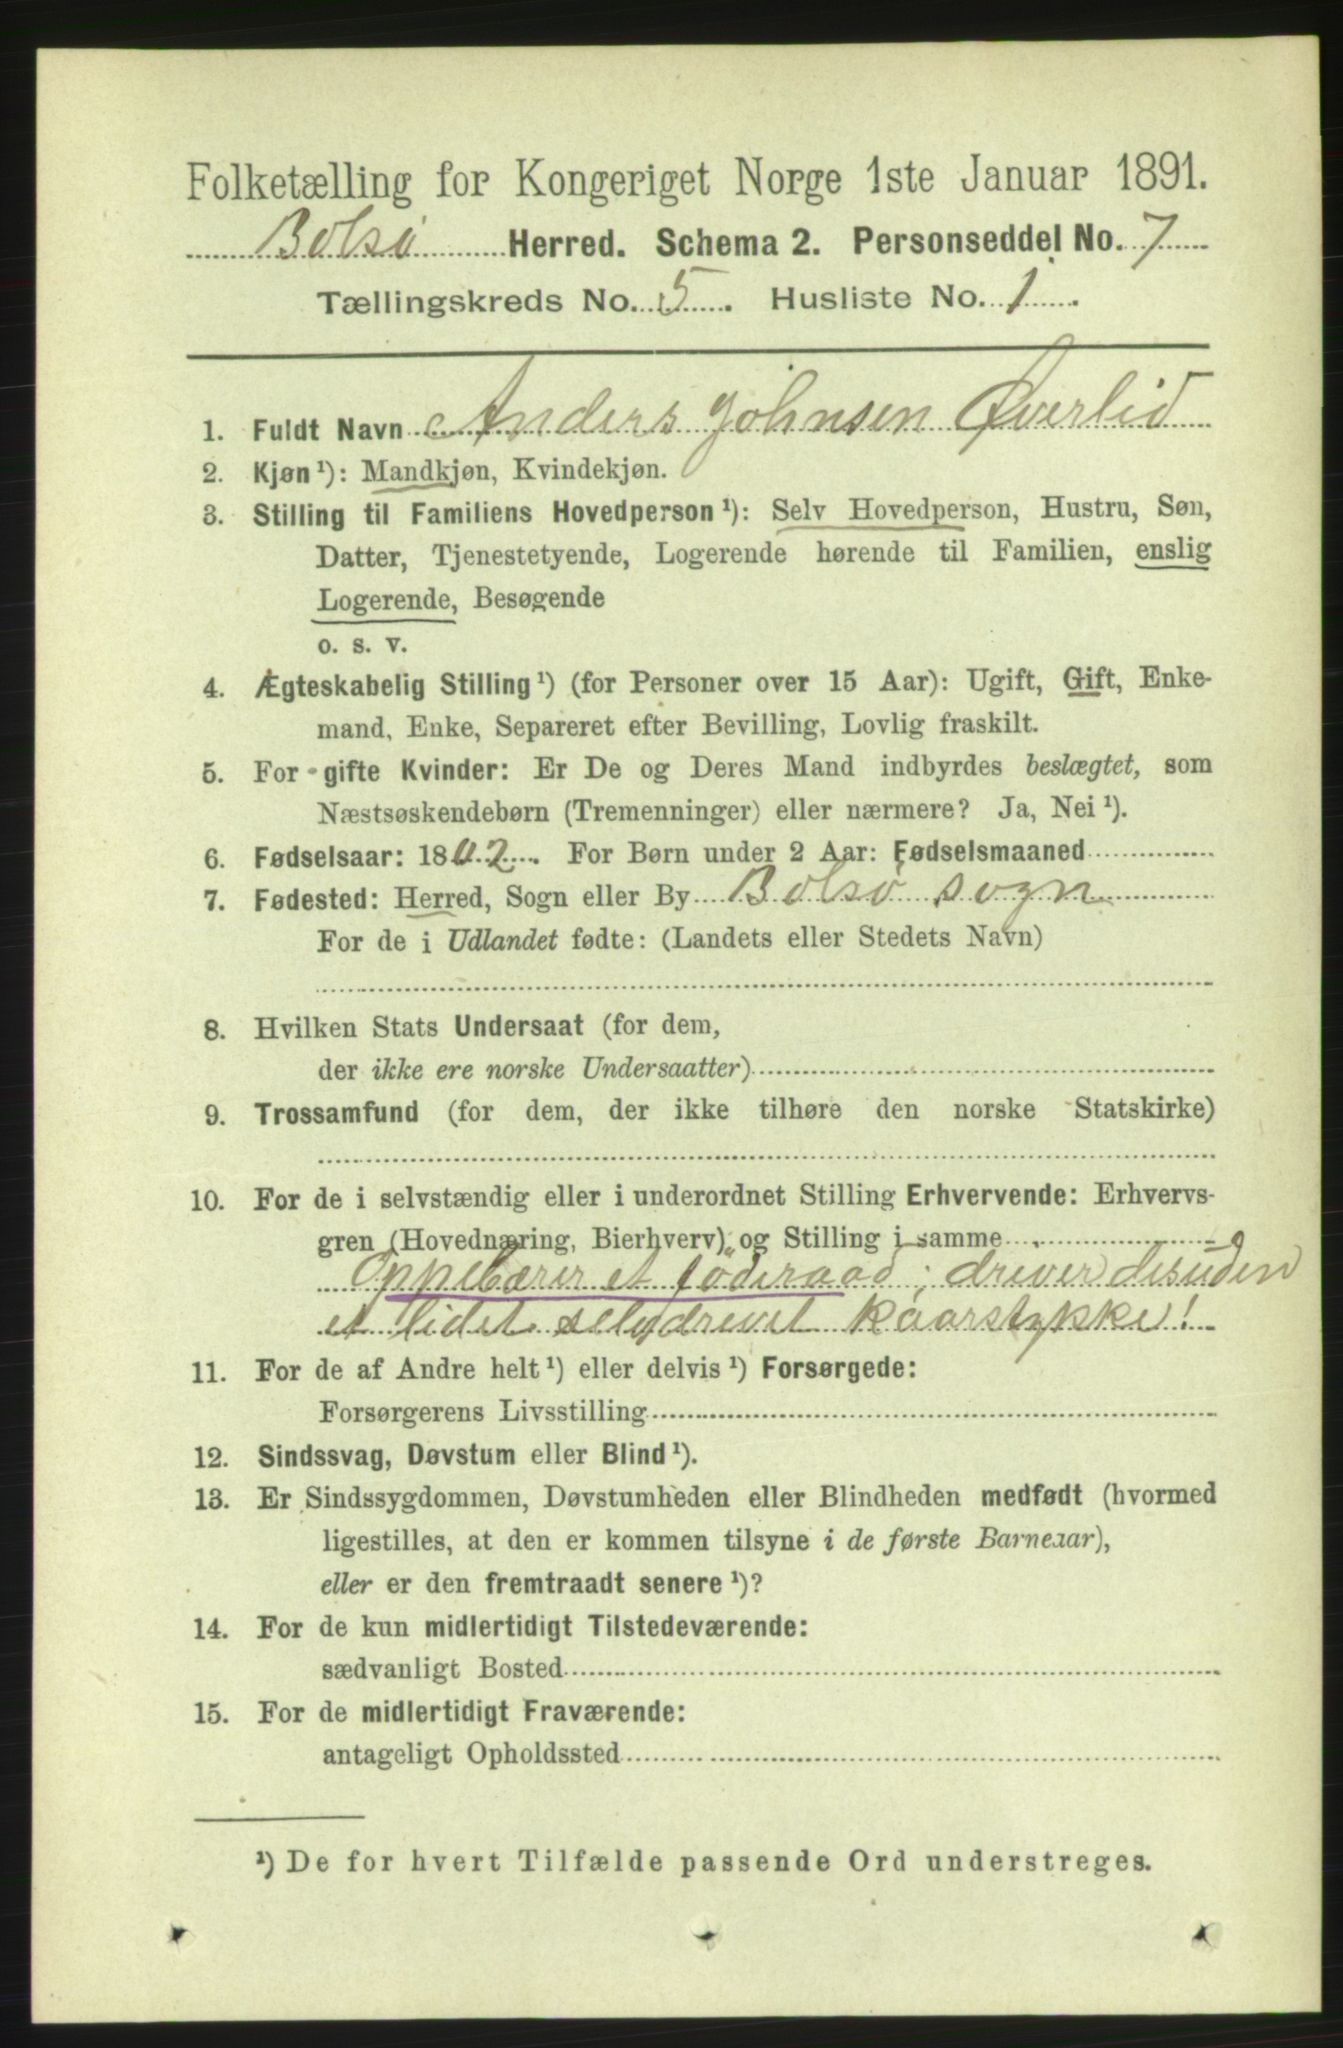 Folketælling for Kongeriget Norge 1ste Januar 1891.
Bolsø Herred. Schema 2. Personseddel No. 7
Tællingskreds No. 5. Husliste No. 1.
1. Fuldt Navn Anders Johnsen Øverlid
2. Kjøn ¹): Mandkjøn, Kvindekjøn.
3. Stilling til Familiens Hovedperson ¹): Selv Hovedperson, Hustru, Søn,
Datter, Tjenestetyende, Logerende hørende til Familien, enslig
Logerende, Besøgende
o. s. v.
4. Ægteskabelig Stilling ¹) (for Personer over 15 Aar): Ugift, Gift, Enke-
mand, Enke, Separeret efter Bevilling, Lovlig fraskilt.
5. For gifte Kvinder: Er De og Deres Mand indbyrdes beslægtet, som
Næstsøskendebørn (Tremenninger) eller nærmere? Ja, Nei ¹).
6. Fødselsaar: 1802. For Børn under 2 Aar: Fødselsmaaned
7. Fødested: Herred, Sogn eller By Bolsø sogn
For de i Udlandet fødte: (Landets eller Stedets Navn)
8. Hvilken Stats Undersaat (for dem,
der ikke ere norske Undersaatter)
9. Trossamfund (for dem, der ikke tilhøre den norske Statskirke)
10. For de i selvstændig eller i underordnet Stilling Erhvervende: Erhvervs-
gren (Hovednæring, Bierhverv) og Stilling i samme
Oppebærer et föderaad; driver desuden
et lidet selvdrevet kaarstykke!
11. For de af Andre helt ¹) eller delvis ¹) Forsørgede:
Forsørgerens Livsstilling
12. Sindssvag, Døvstum eller Blind ¹).
13. Er Sindssygdommen, Døvstumheden eller Blindheden medfødt (hvormed
ligestilles, at den er kommen tilsyne i de første Barneaar),
eller er den fremtraadt senere ¹)?
14. For de kun midlertidigt Tilstedeværende:
sædvanligt Bosted
15. For de midlertidigt Fraværende:
antageligt Opholdssted
¹) De for hvert Tilfælde passende Ord understreges.